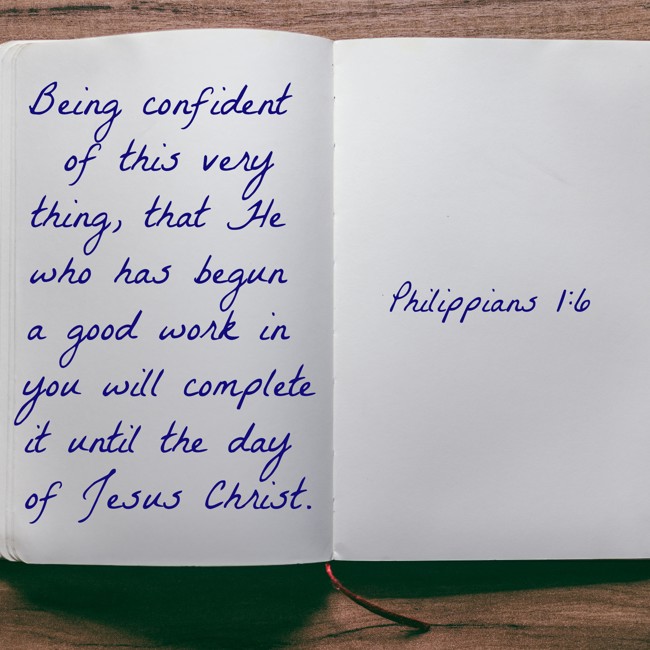 Being confident
of this very
thing, that He
who has begun
a good work in
you will complete
it until the day
of Jesus Christ.
Philippians 1:6